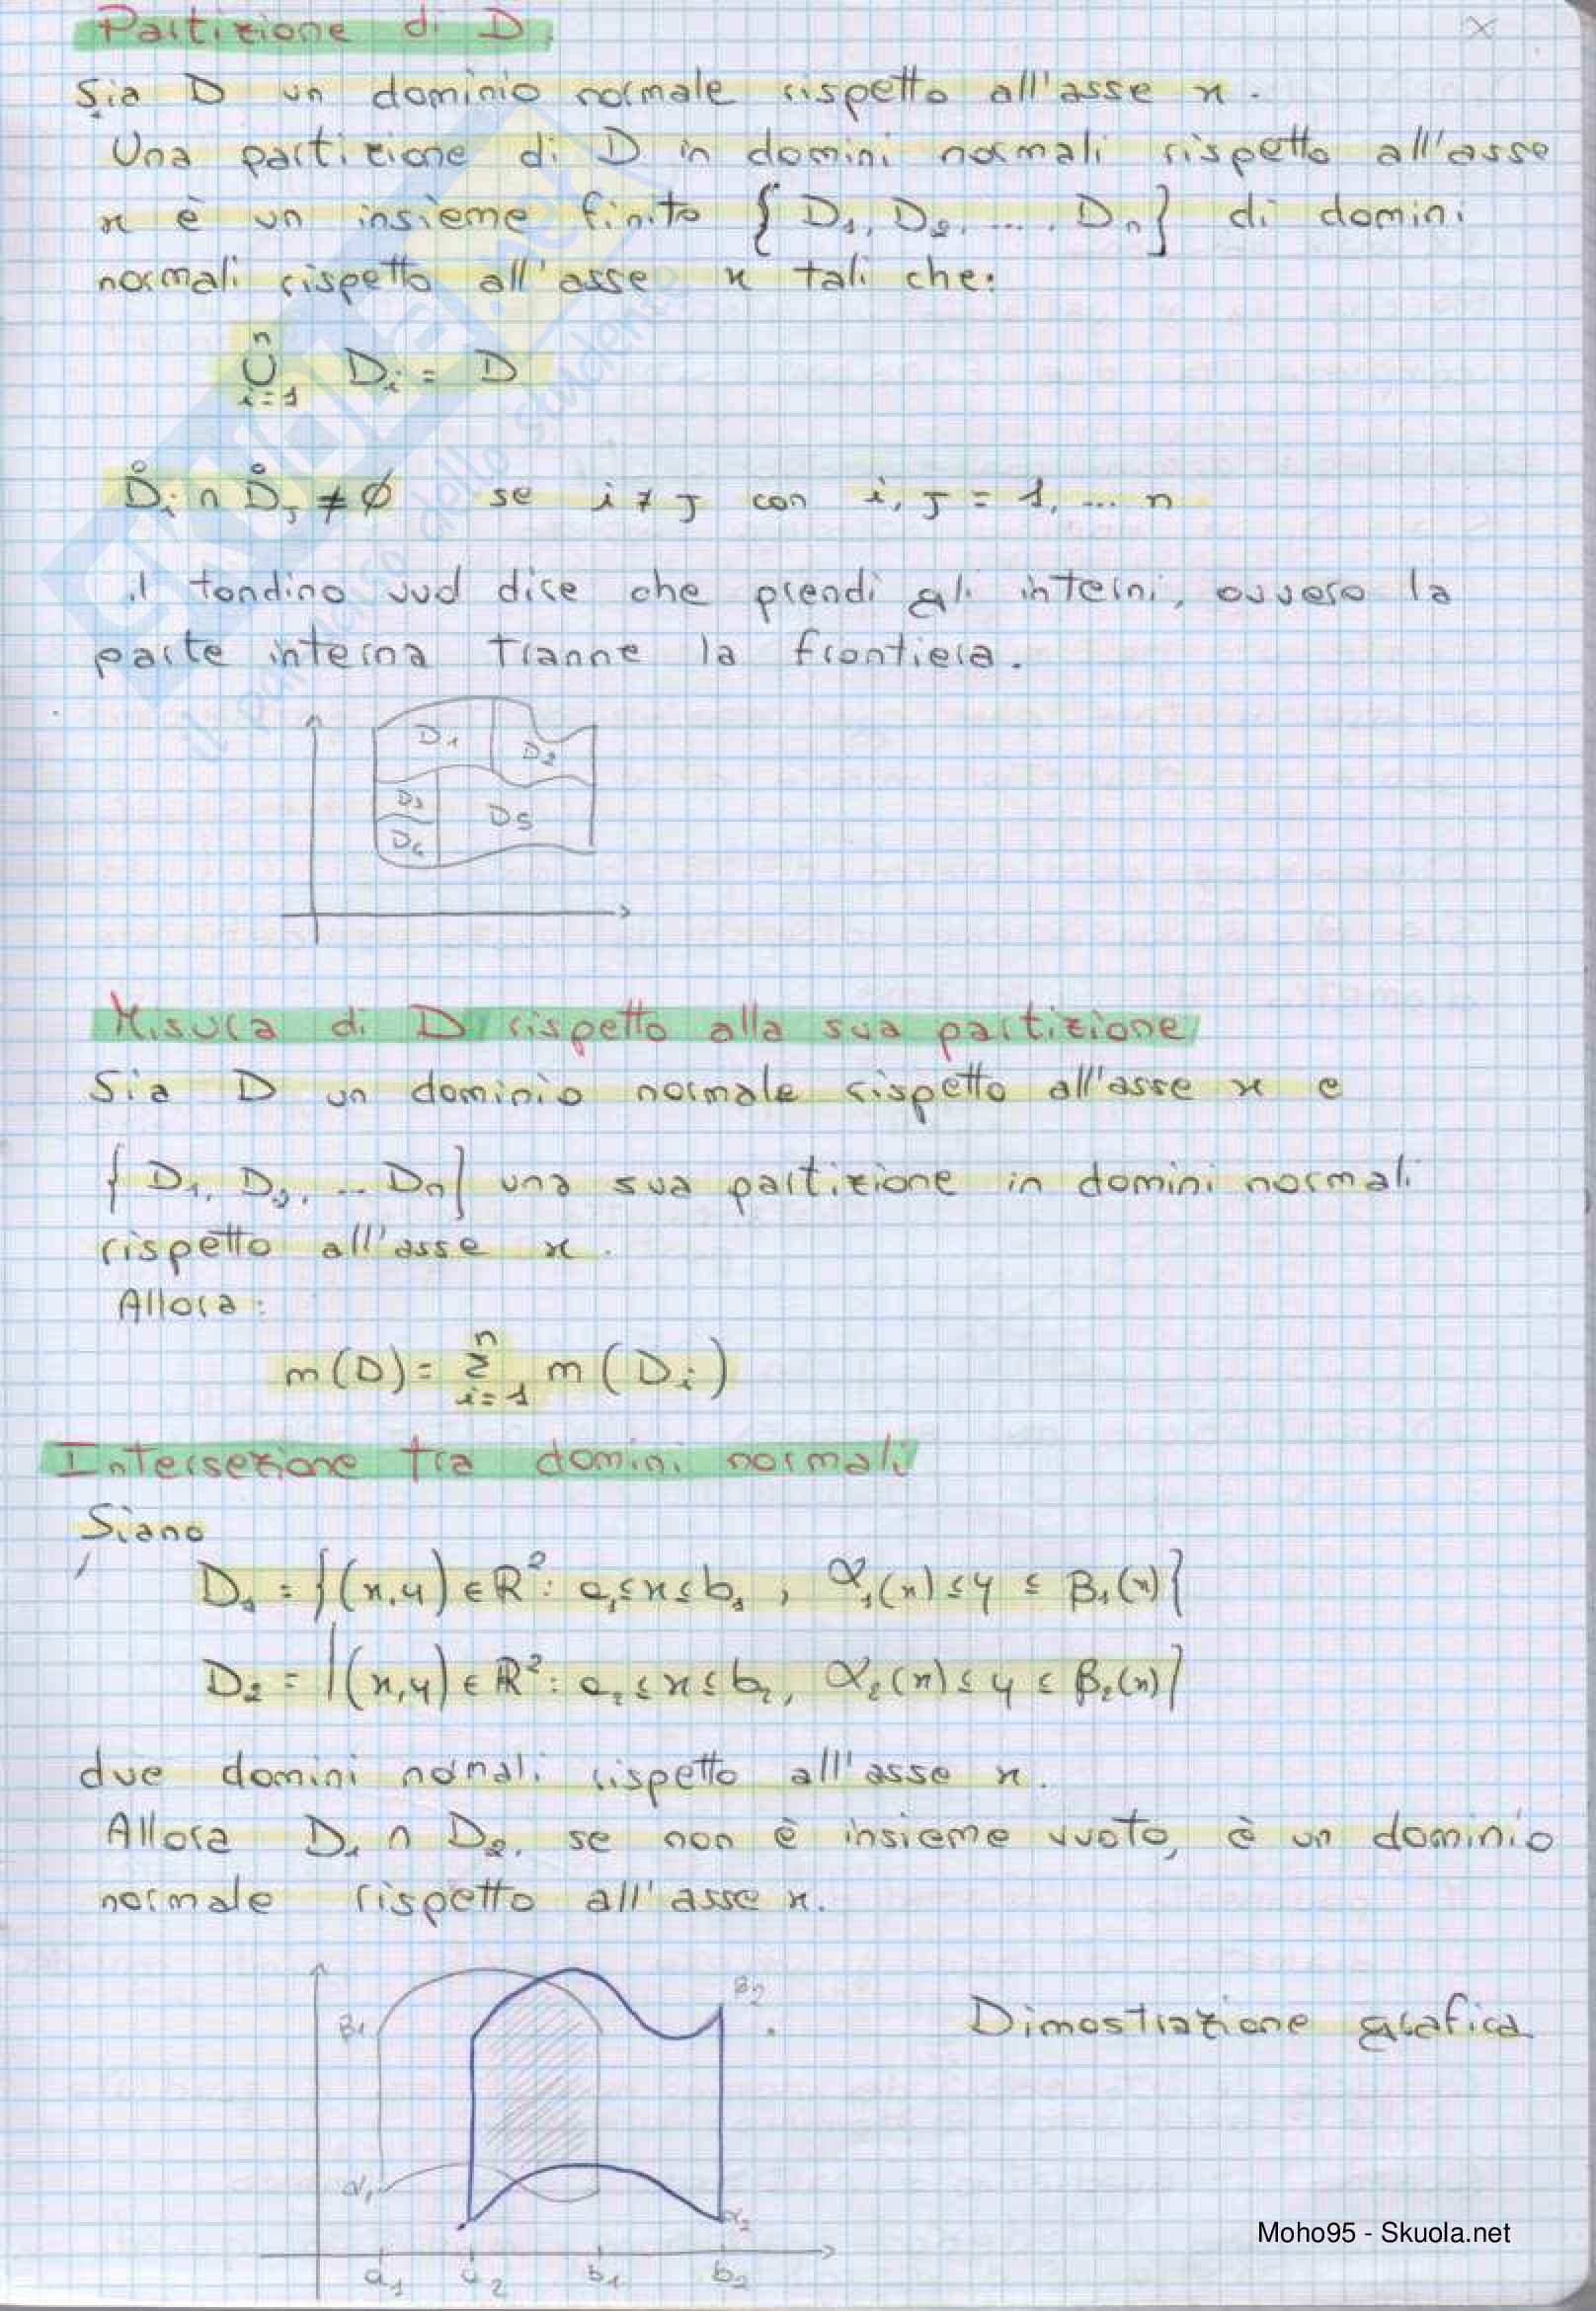 Partizione di D
Sia D un dominio normale rispetto all'asse x.
Una partizione di D in domini normali rispetto all'asse
x è un insieme finito {D₁, D₂, ... , Dₙ} di domini
normali rispetto all'asse x tali che:
n
∪ Dᵢ = D
i=1
D̊ᵢ ∩ D̊ⱼ ≠ ∅ se i ≠ j con i, j = 1, ... n
il tondino vuol dire che prendi gli interni, ovvero la
parte interna tranne la frontiera.
D₁ D₂
D₃ D₅
D₄
Misura di D rispetto alla sua partizione
Sia D un dominio normale rispetto all'asse x e
{D₁, D₂, ... Dₙ} una sua partizione in domini normali
rispetto all'asse x.
Allora:
n
m(D) = Σ m(Dᵢ)
i=1
Intersezione tra domini normali
Siano
D₁ = {(x,y) ∈ R²: a₁≤x≤b₁, α₁(x) ≤ y ≤ β₁(x)}
D₂ = {(x,y) ∈ R²: a₂≤x≤b₂, α₂(x) ≤ y ≤ β₂(x)}
due domini normali rispetto all'asse x.
Allora D₁ ∩ D₂, se non è insieme vuoto, è un dominio
normale rispetto all'asse x.
β₂
β₁ Dimostrazione grafica
α₁ α₂
a₁ a₂ b₁ b₂
Moho95 - Skuola.net
SKUOLA.net
il paradiso dello studente